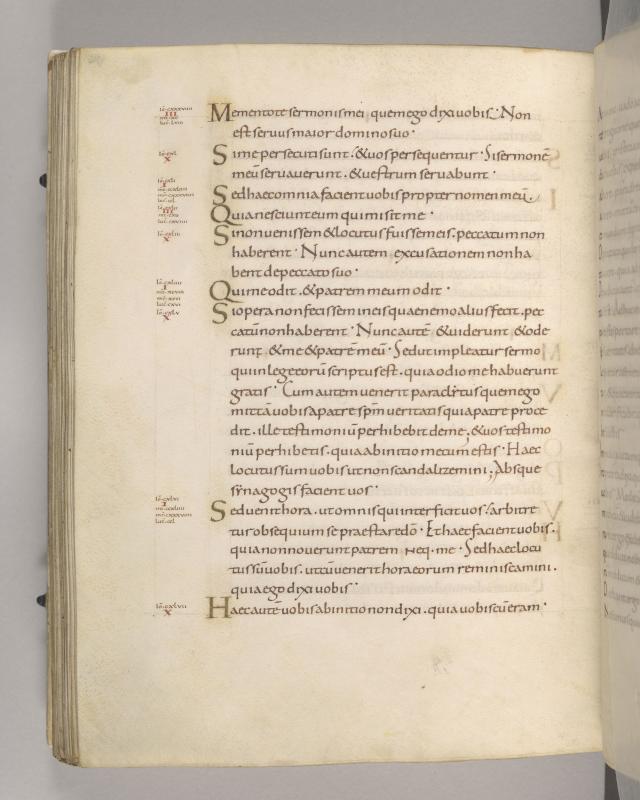 Mementote sermonis mei quem ego dixi vobis. Non
est servus maior domino suo.
Si me persecuti sunt. & vos persequentur. Si sermonē
meū servaverunt. & vestrum servabunt.
Sed haec omnia facient vobis propter nomen meū.
Quia nesciunt eum qui misit me.
Si non venissem & locutus fuissem eis. peccatum non
haberent. Nunc autem excusationem non ha
bent de peccato suo.
Qui me odit. & patrem meum odit.
Si opera non fecissem in eis quae nemo alius fecit. pec
catū non haberent. Nunc autē & viderunt & ode
runt & me & patrē meū. Sed ut impleatur sermo
qui in lege eorū scriptus est. quia odio me habuerunt
gratis. Cum autem venerit paraclytus quem ego
mittā vobis a patre spm veritatis qui a patre proce
dit. ille testimoniū perhibebit de me; & vos testimo
niū perhibetis. quia ab initio mecum estis. Haec
locutus sum vobis ut non scandalizemini; Absque
synagogis facient vos.
Sed venit hora. ut omnis qui interficit vos. arbitre
tur obsequium se praestare dō. Et haec facient vobis.
quia non noverunt patrem neq. me. Sed haec locu
tus sū vobis. ut cū venerit hora eorum reminiscamini.
quia ego dixi vobis.
Haec autē vobis ab initio non dixi. quia vobiscū eram.